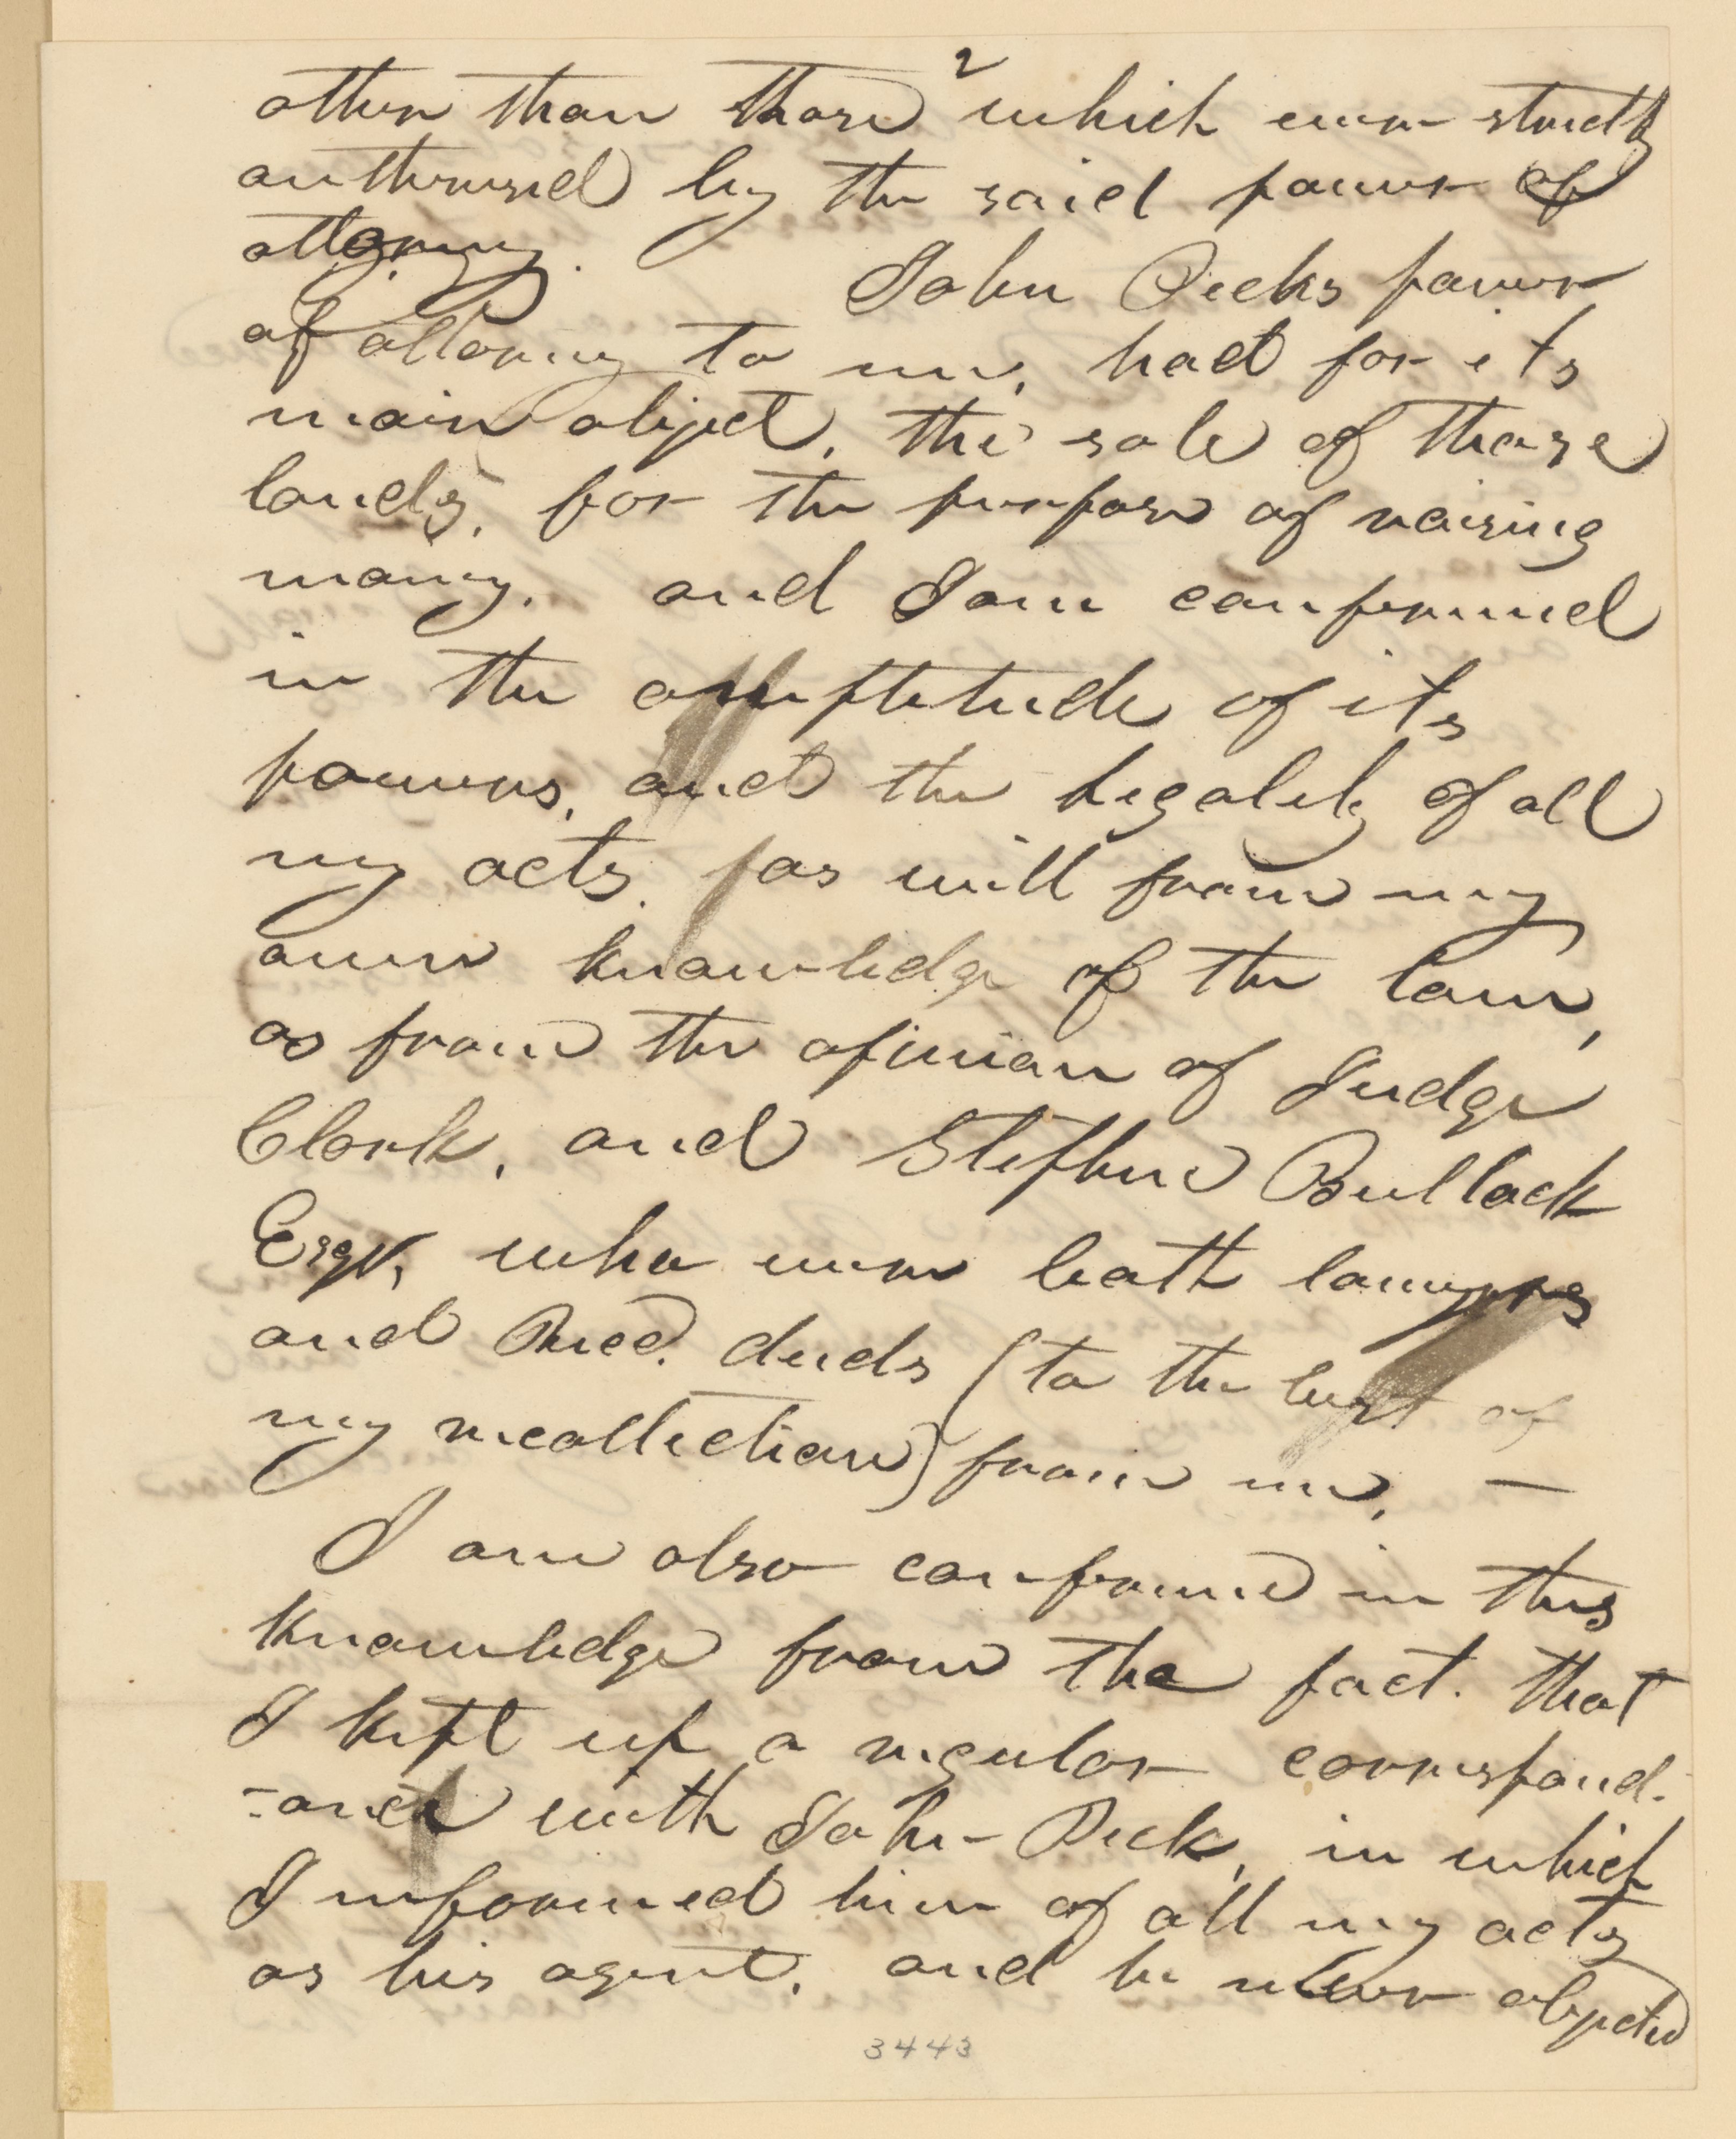 2
other than those which were strictly
authorised by the said power of
attorney. John Pecks power
of attorney to me, had for its
main object, the sale of these
lands, for the purpose of raising
money. and I am confirmed
in the amplitude of its
powers, and the legality of all
my acts, as well from my
own knowledge of the law,
as from the opinion of Judge
Clark, and Stephen Bullock
Esqr, who were both lawyers
and Recd. deeds (to the best of
my recollection) from me. —
I am also confirmed in this
knowledge from the fact. that
I kept up a regular correspond-
-ance with John Peck, in which
I informed him of all my acts
as his agent, and he never objected
3443